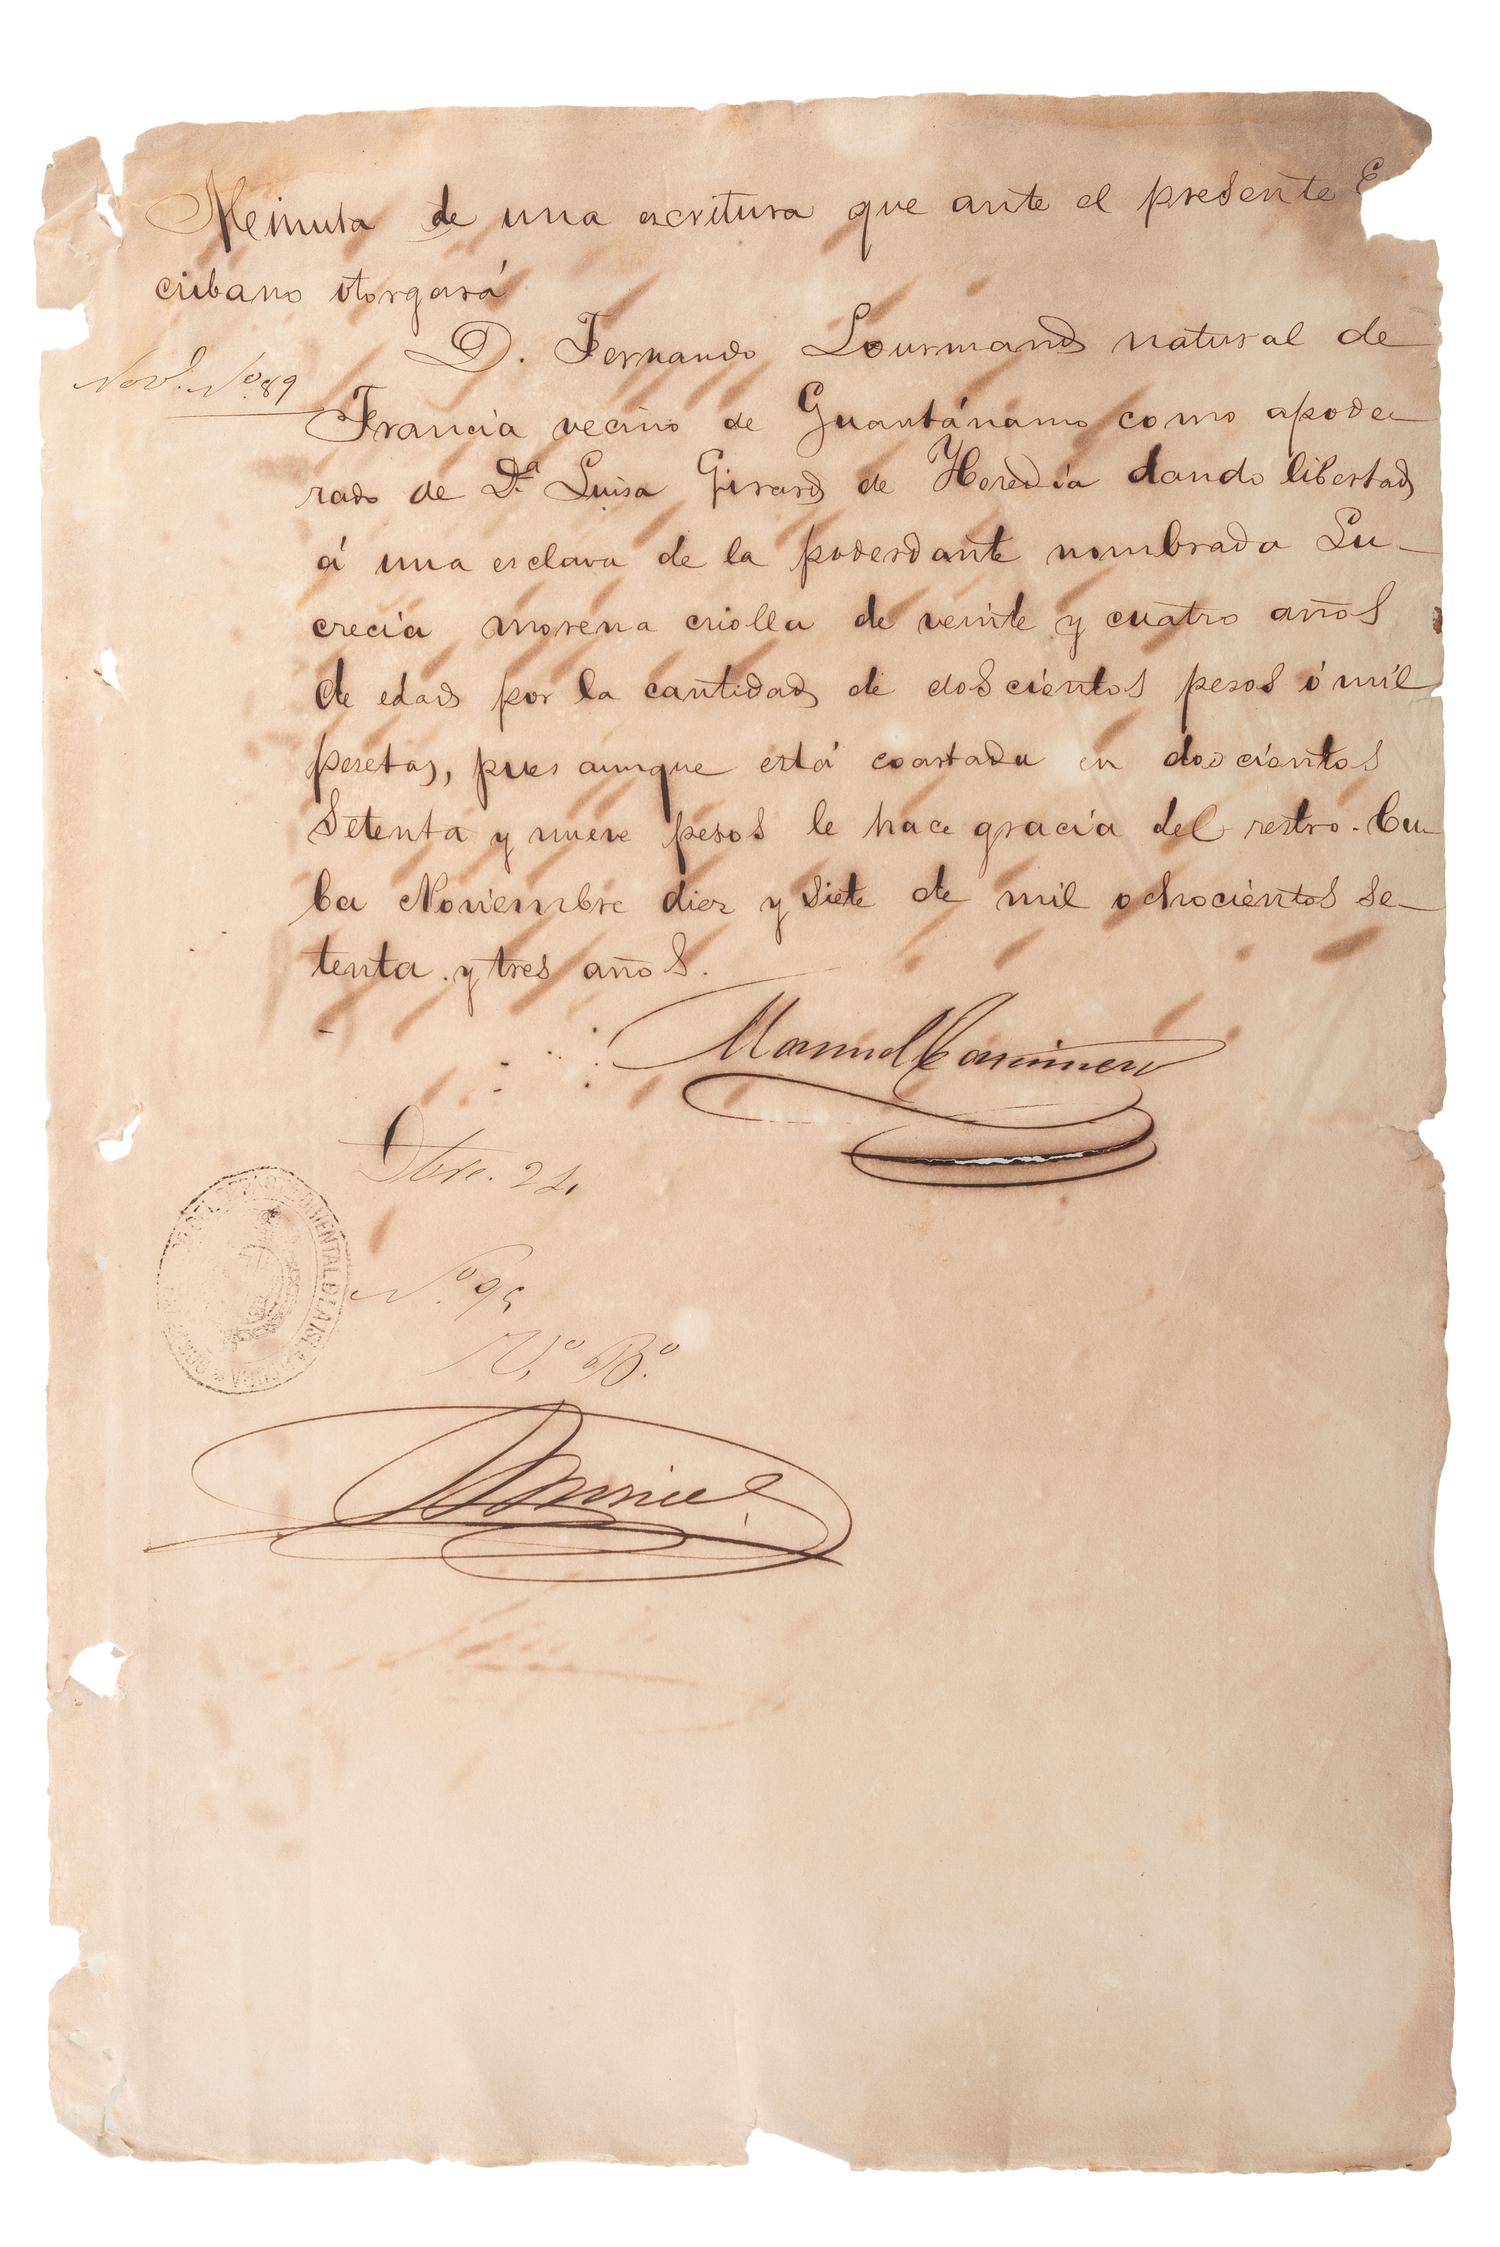 Minuta de una escritura que ante el presente E
cribano otorgará
D. Fernando Lourmand natural de
Novl. No. 89
Francia vecino de Guantánamo como apode-
rado de Da. Luisa Girard de Heredia dando libertad
á una esclava de la poderdante nombrada Lu-
crecia morena criolla de veinte y cuatro años
de edad por la cantidad de doscientos pesos ó mil
pesetas, pues aunque está coartada en doscientos
setenta y nueve pesos le hace gracia del restro. Cu-
ba Noviembre diez y siete de mil ochocientos se-
tenta y tres años.
Manuel Caminero
Dbre. 24
No. 95
Vo. Bo.